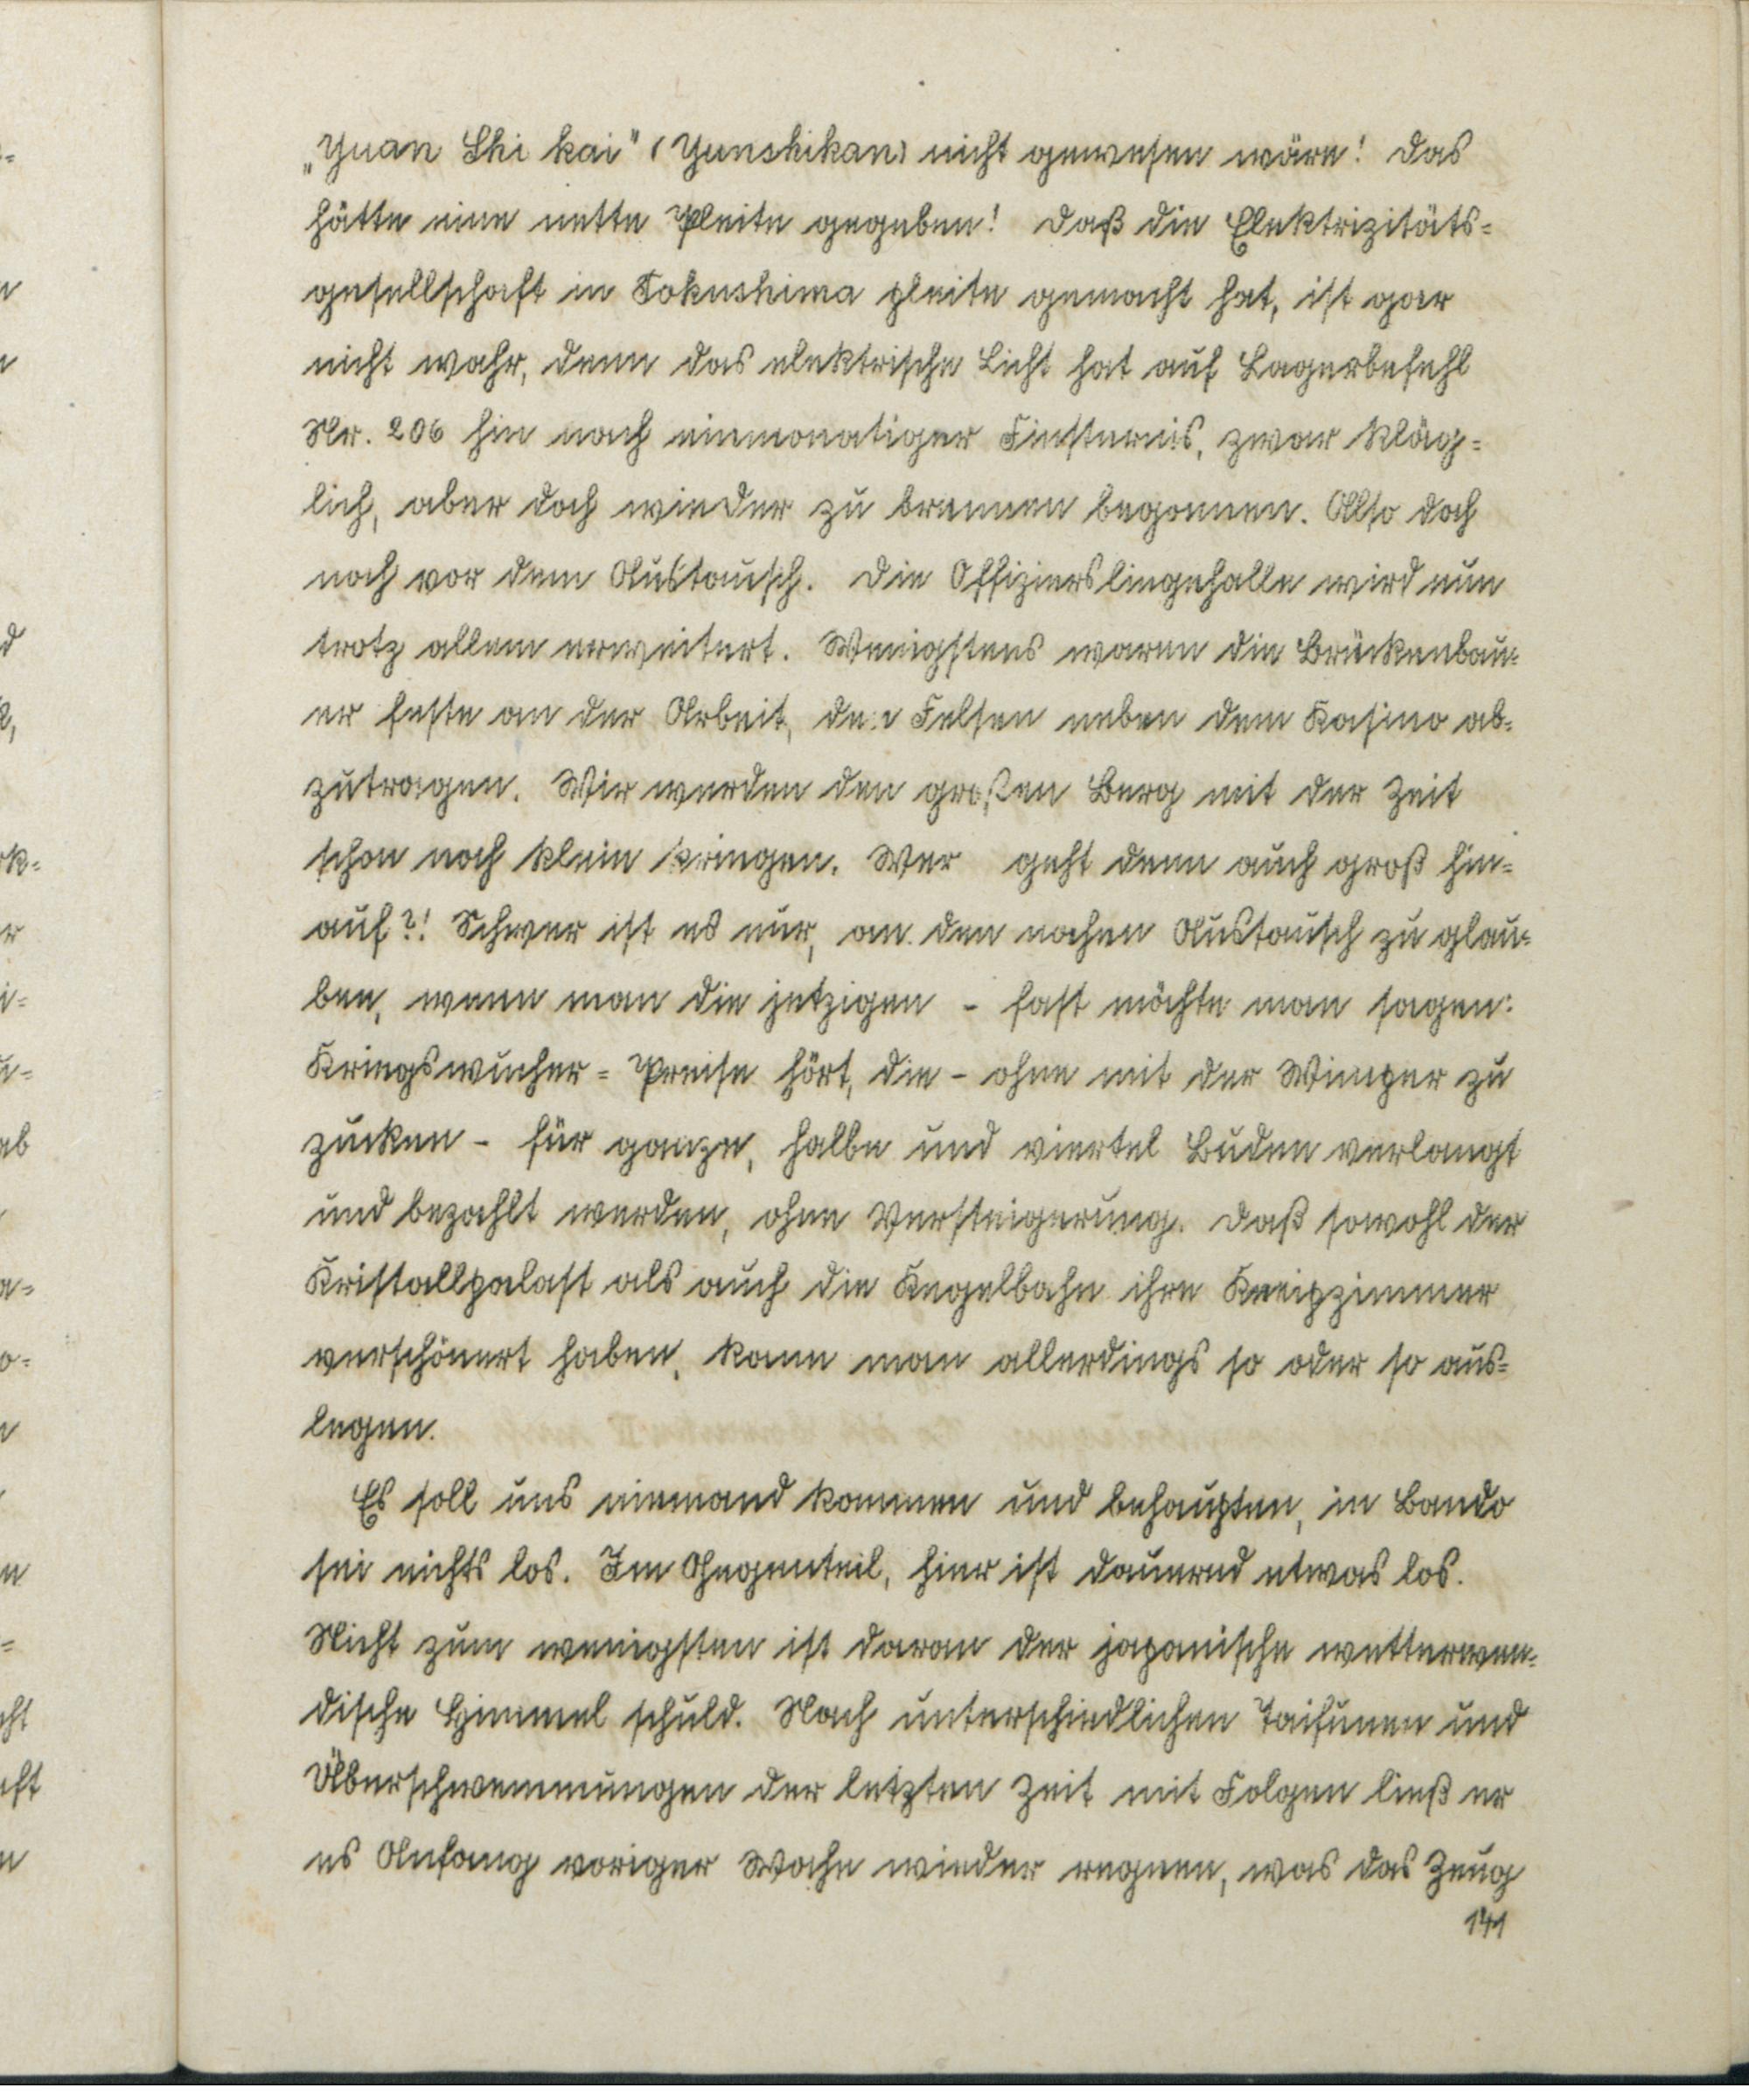 „Yuan Shi kai" (Yunshikan) nicht gewesen wäre! Das
hätte eine nette Pleite gegeben! Daß die Elektrizitäts=
gesellschaft in Tokushima pleite gemacht hat, ist gar
nicht wahr, denn das elektrische Licht hat auf Lagerbefehl
Nr. 206 hin nach einmonatiger Finsternis, zwar kläg=
lich, aber doch wieder zu brennen begonnen. Also doch
noch vor dem Austausch. Die Offiziersliegehalle wird nun
trotz allem erweitert. Wenigstens waren die Brückenbau=
er feste an der Arbeit, den Felsen neben dem Kasino ab=
zutragen. Wir werden den großen Berg mit der Zeit
schon noch klein kriegen. Wer geht denn auch groß hin=
auf?! Schwer ist es nur, an den nahen Austausch zu glau=
ben, wenn man die jetzigen - fast möchte man sagen:
Kriegswucher=Preise hört, die - ohne mit der Wimper zu
zucken - für ganze, halbe und viertel Buden verlangt
und bezahlt werden, ohne Versteigerung. Daß sowohl der
Kristallpalast als auch die Kegelbahn ihre Kneipzimmer
verschönert haben, kann man allerdings so oder so aus=
legen.
Es soll uns niemand kommen und behaupten, in Bando
sei nichts los. Im Gegenteil, hier ist dauernd etwas los.
Nicht zum wenigsten ist daran der japanische wetterwen=
dische Himmel schuld. Nach unterschiedlichen Taifunen und
Überschwemmungen der letzten Zeit mit Folgen ließ er
es Anfang voriger Woche wieder regnen, was das Zeug
141